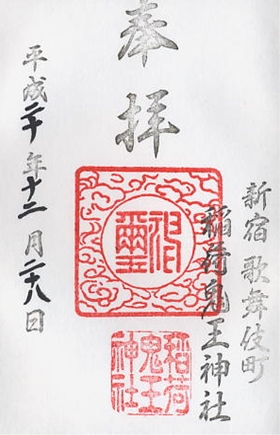 新宿 歌舞伎町
稲荷鬼王神社
奉拝
神璽
稲荷
鬼王
神社
平成二十年十二月二十八日